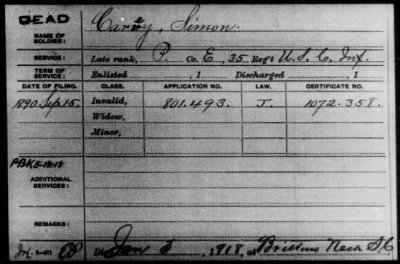 DEAD
NAME OF SOLDIER: Carey, Simon.
SERVICE: Late rank, P. Co. E, 35 Reg't U. S. C. Inf.
TERM OF SERVICE: Enlisted , 1 Discharged , 1
DATE OF FILING. CLASS. APPLICATION NO. LAW. CERTIFICATE NO.
1890 Sep. 15. Invalid, 801.493. J. 1072.358.
Widow,
Minor,
ADDITIONAL SERVICES:
REMARKS:
Died Jan 5, 1918, at Brittons Neck S C